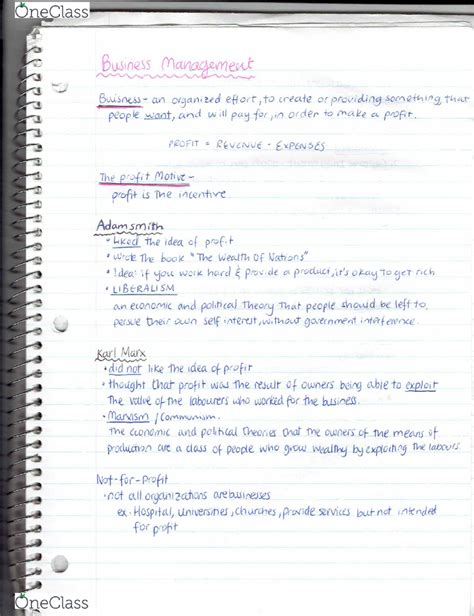 OneClass
Business Management
Buisness - an organized effort, to create or providing something that
people want, and will pay for, in order to make a profit.
PROFIT = REVENUE - EXPENSES
The profit Motive -
profit is the incentive
Adam smith
• Liked the idea of profit
• Wrote the book "The Wealth Of Nations"
• Idea: if you work hard & provide a product, it's okay to get rich
• LIBERALISM
an economic and political theory that people should be left to,
persue their own self interest, without government interference.
Karl Marx
• did not like the idea of profit
• thought that profit was the result of owners being able to exploit
the value of the labourers who worked for the business.
• Marxism / Communum.
the economic and political theories that the owners of the means of
production are a class of people who grow wealthy by exploiting the labours.
Not-for-Profit
• not all organizations are businesses
ex. Hospital, universities, churches, provide services but not intended
for profit
OneClass